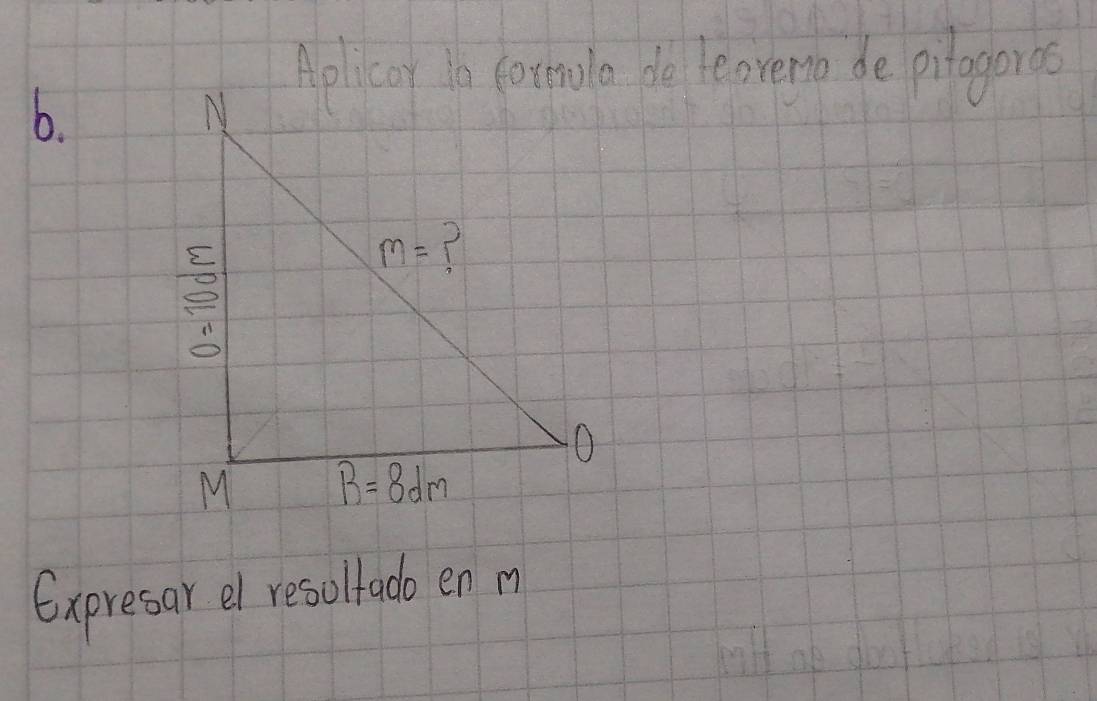 Aplicar la formula de teorema de pitagoras
b.
N
m = ?
O = 10dm
O
M
B = 8dm
Expresar el resultado en m